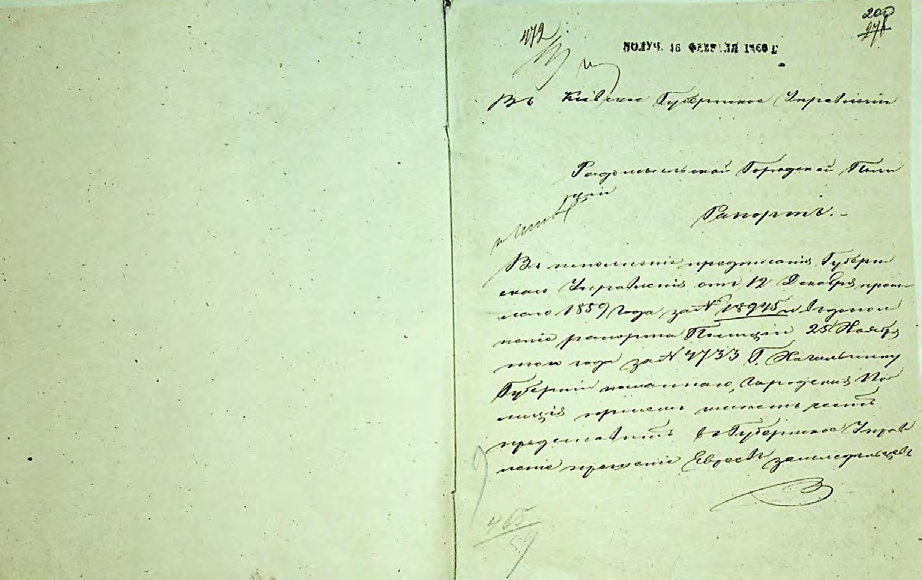 472
200
271
ПОЛУЧ. 16 ФЕВРАЛЯ 1860 Г
Въ Кіевское Губернское Управленіе
Радомысльской Городской Поли
ціи
Рапортъ.
Въ исполненіе предписанія Губерн
скаго Управленія отъ 12 Декабря прош
лаго 1859 года за № 18945 и въ допол
неніе рапорта Полиціи 25 Ноября
того года за № 4733 Г. Начальнику
Губерніи посланнаго, Городская По
лиція имѣетъ честь
представить въ Губернское Управ
леніе прошеніе Евреевъ земледѣльцевъ
465
59